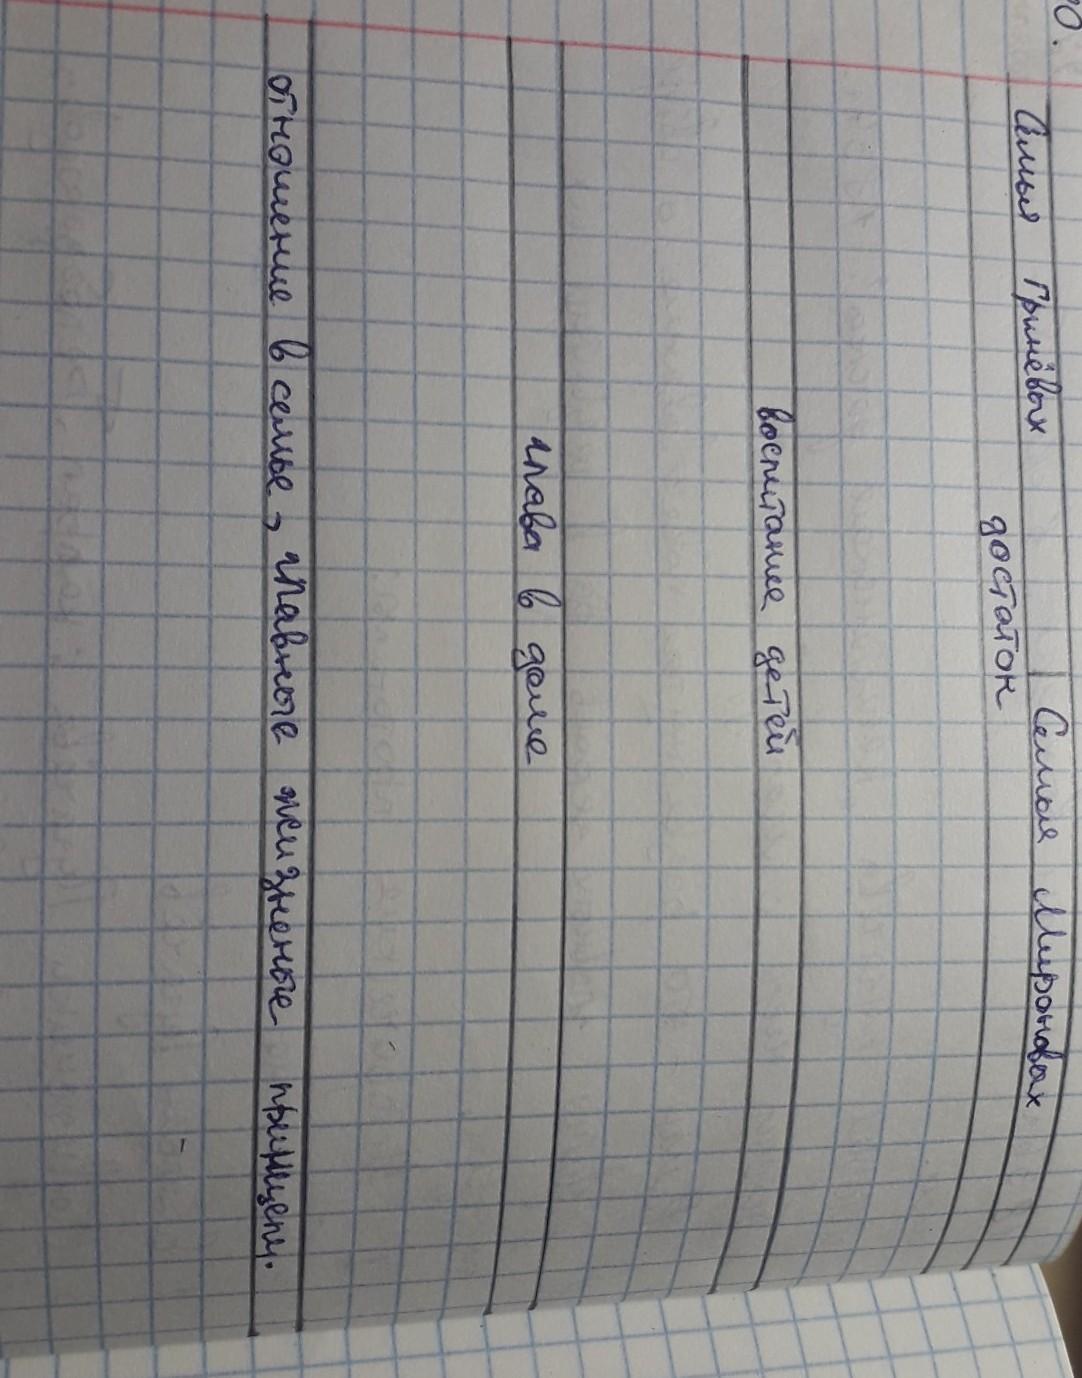 0.
Семья Гринёвых Семья Мироновых
достаток
воспитание детей
глава в доме
отношение в семье, главные жизненые принципы.